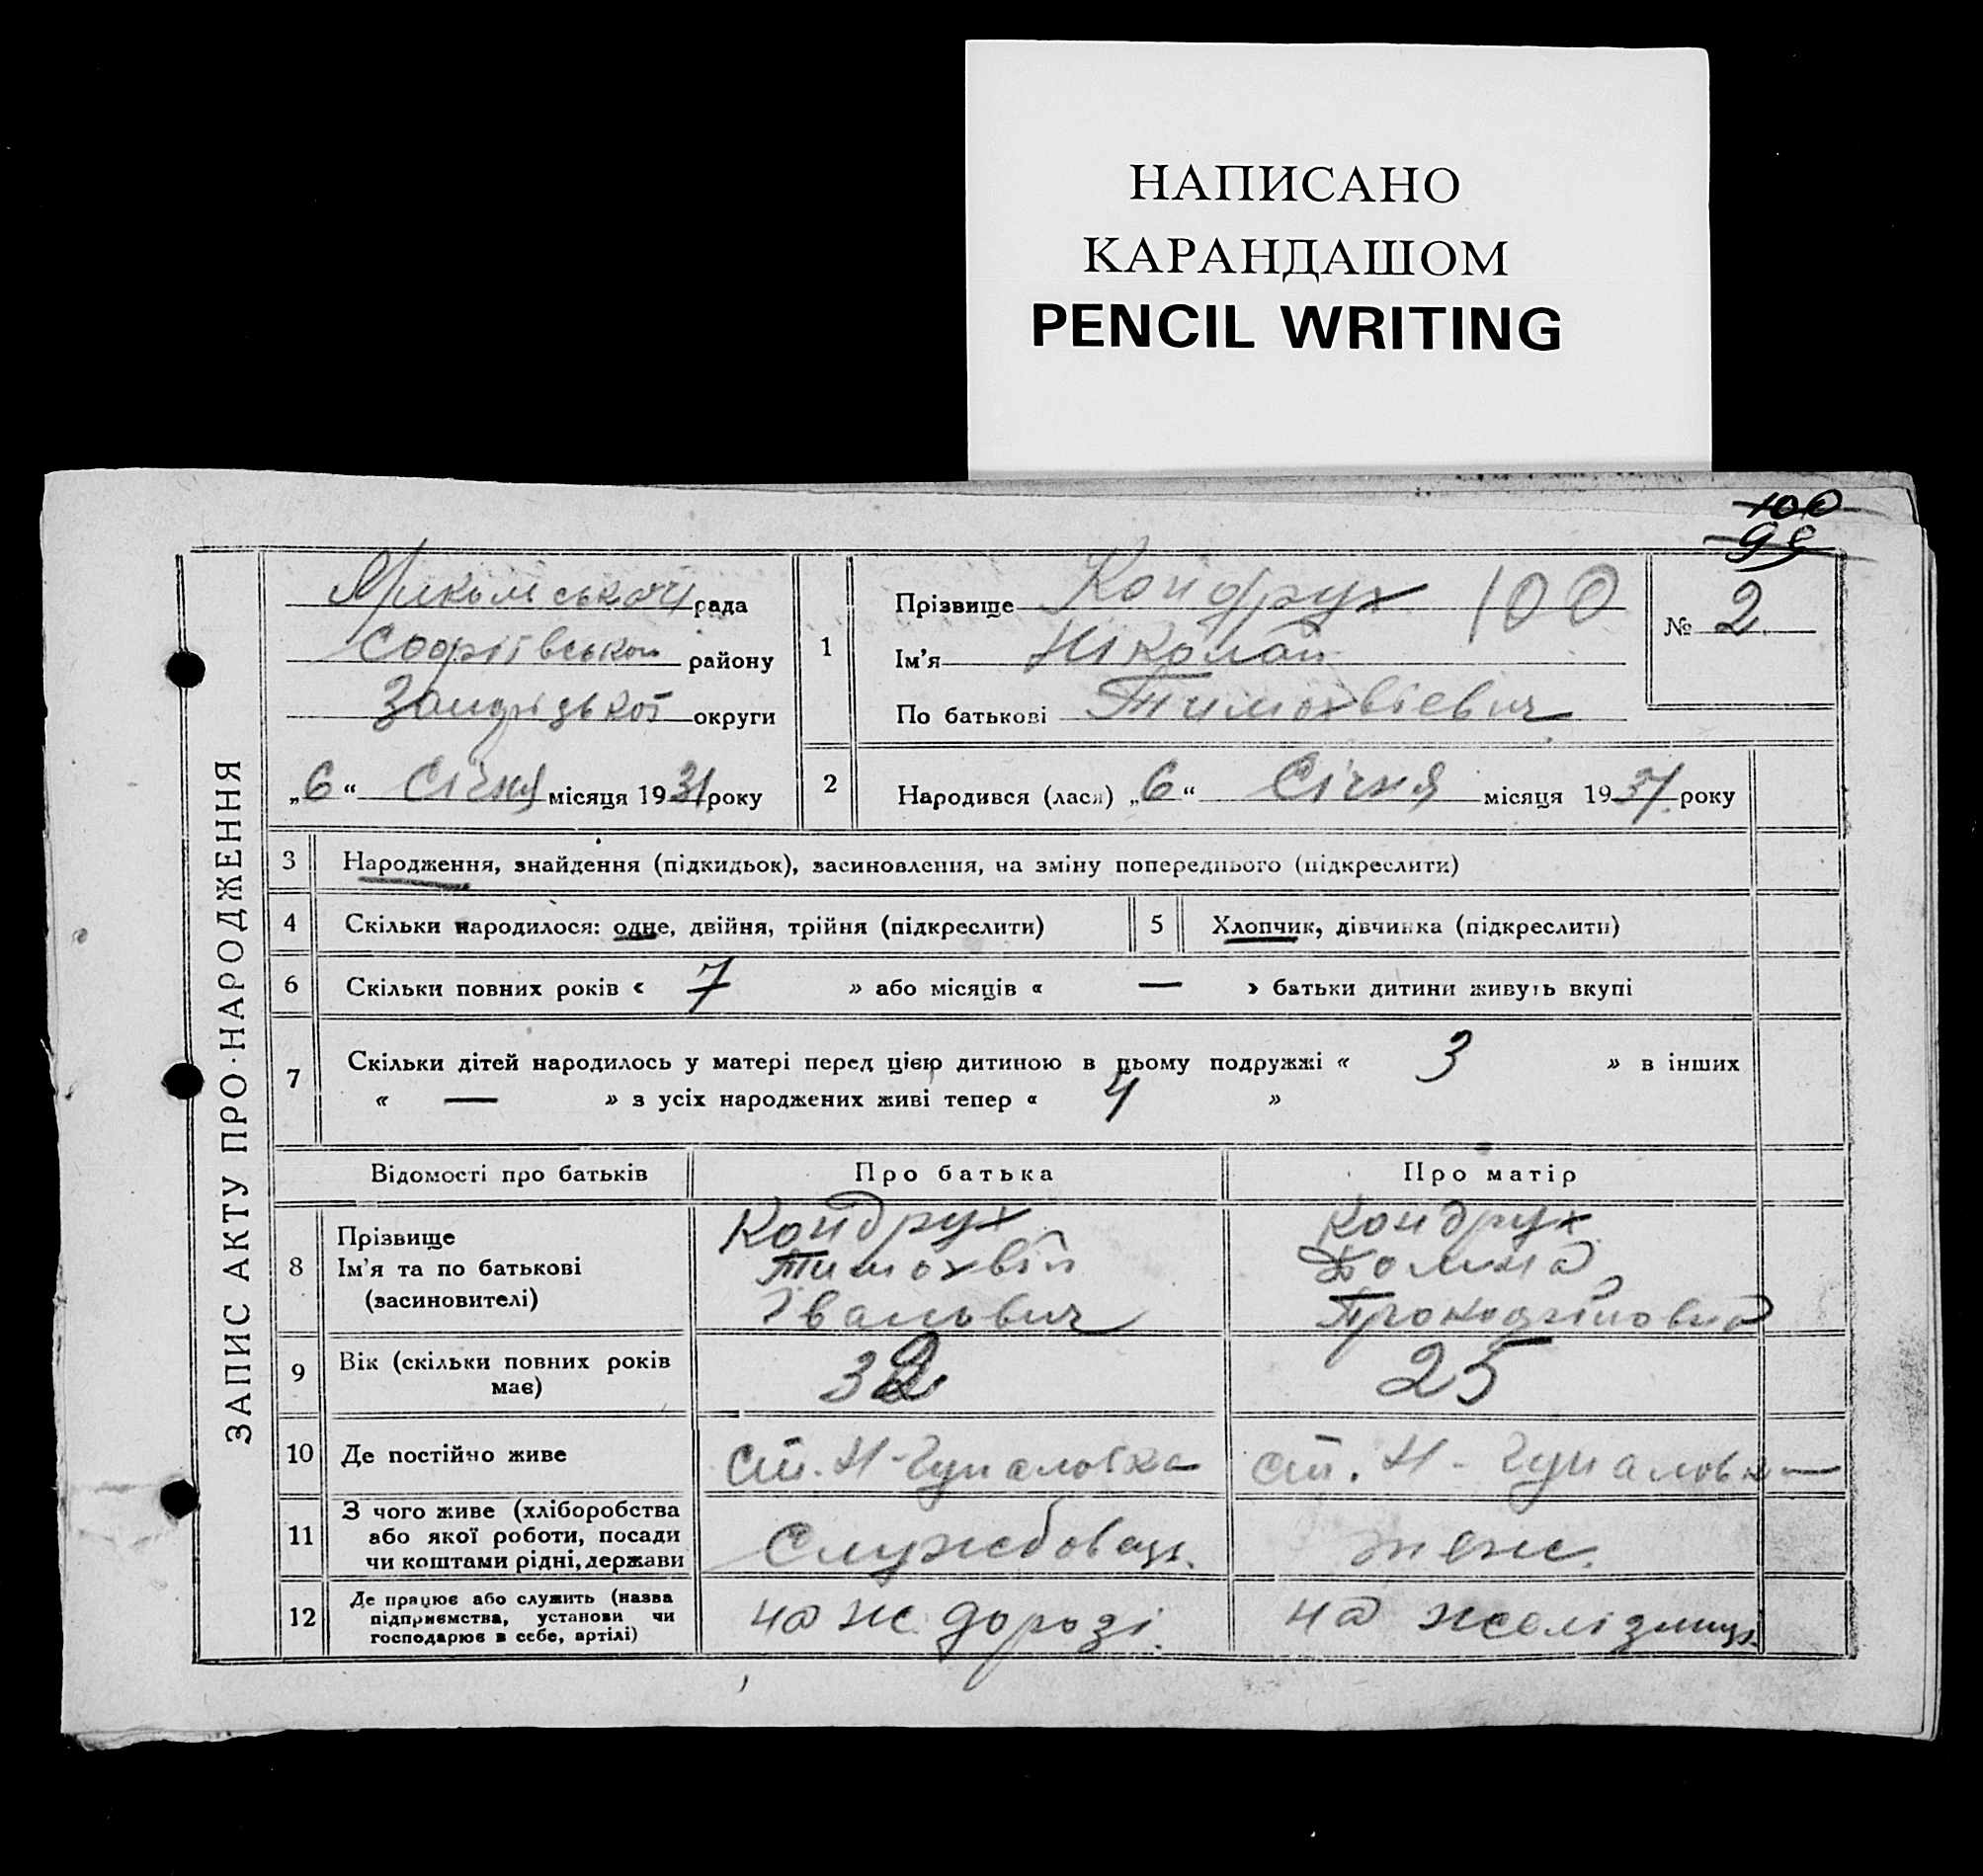 НАПИСАНО
КАРАНДАШОМ
PENCIL WRITING
100
99
ЗАПИС АКТУ ПРО НАРОДЖЕННЯ
рада
Софріївської району
округи
„6“ Січня місяця 1931 року
1
Прізвище Кондрух 100
Ім'я Ніколай
По батькові Тимохвіевич
№ 2
2
Народився (лася) „6“ Січня місяця 1931 року
3 Народження, знайдення (підкидьок), засиновлення, на зміну попереднього (підкреслити)
4 Скільки народилося: одне, двійня, трійня (підкреслити)
5 Хлопчик, дівчинка (підкреслити)
6 Скільки повних років « 7 » або місяців « — » батьки дитини живуть вкупі
7 Скільки дітей народилось у матері перед цією дитиною в цьому подружжі « 3 » в інших
« — » з усіх народжених живі тепер « 4 »
Відомості про батьків Про батька Про матір
8 Прізвище
Ім'я та по батькові
(засиновителі)
Кондрух
Тимохвій
Івановіч
Кондрух
Домна
Прокофіновна
9 Вік (скільки повних років
має)
32 25
10 Де постійно живе ст. Н-Гупаловка ст. Н-Гупаловка
11 З чого живе (хліборобства
або якої роботи, посади
чи коштами рідні, держави
Службовец.
12 Де працює або служить (назва
підприємства, установи чи
господарює в себе, артілі)
на ж дорозі. на желізниці